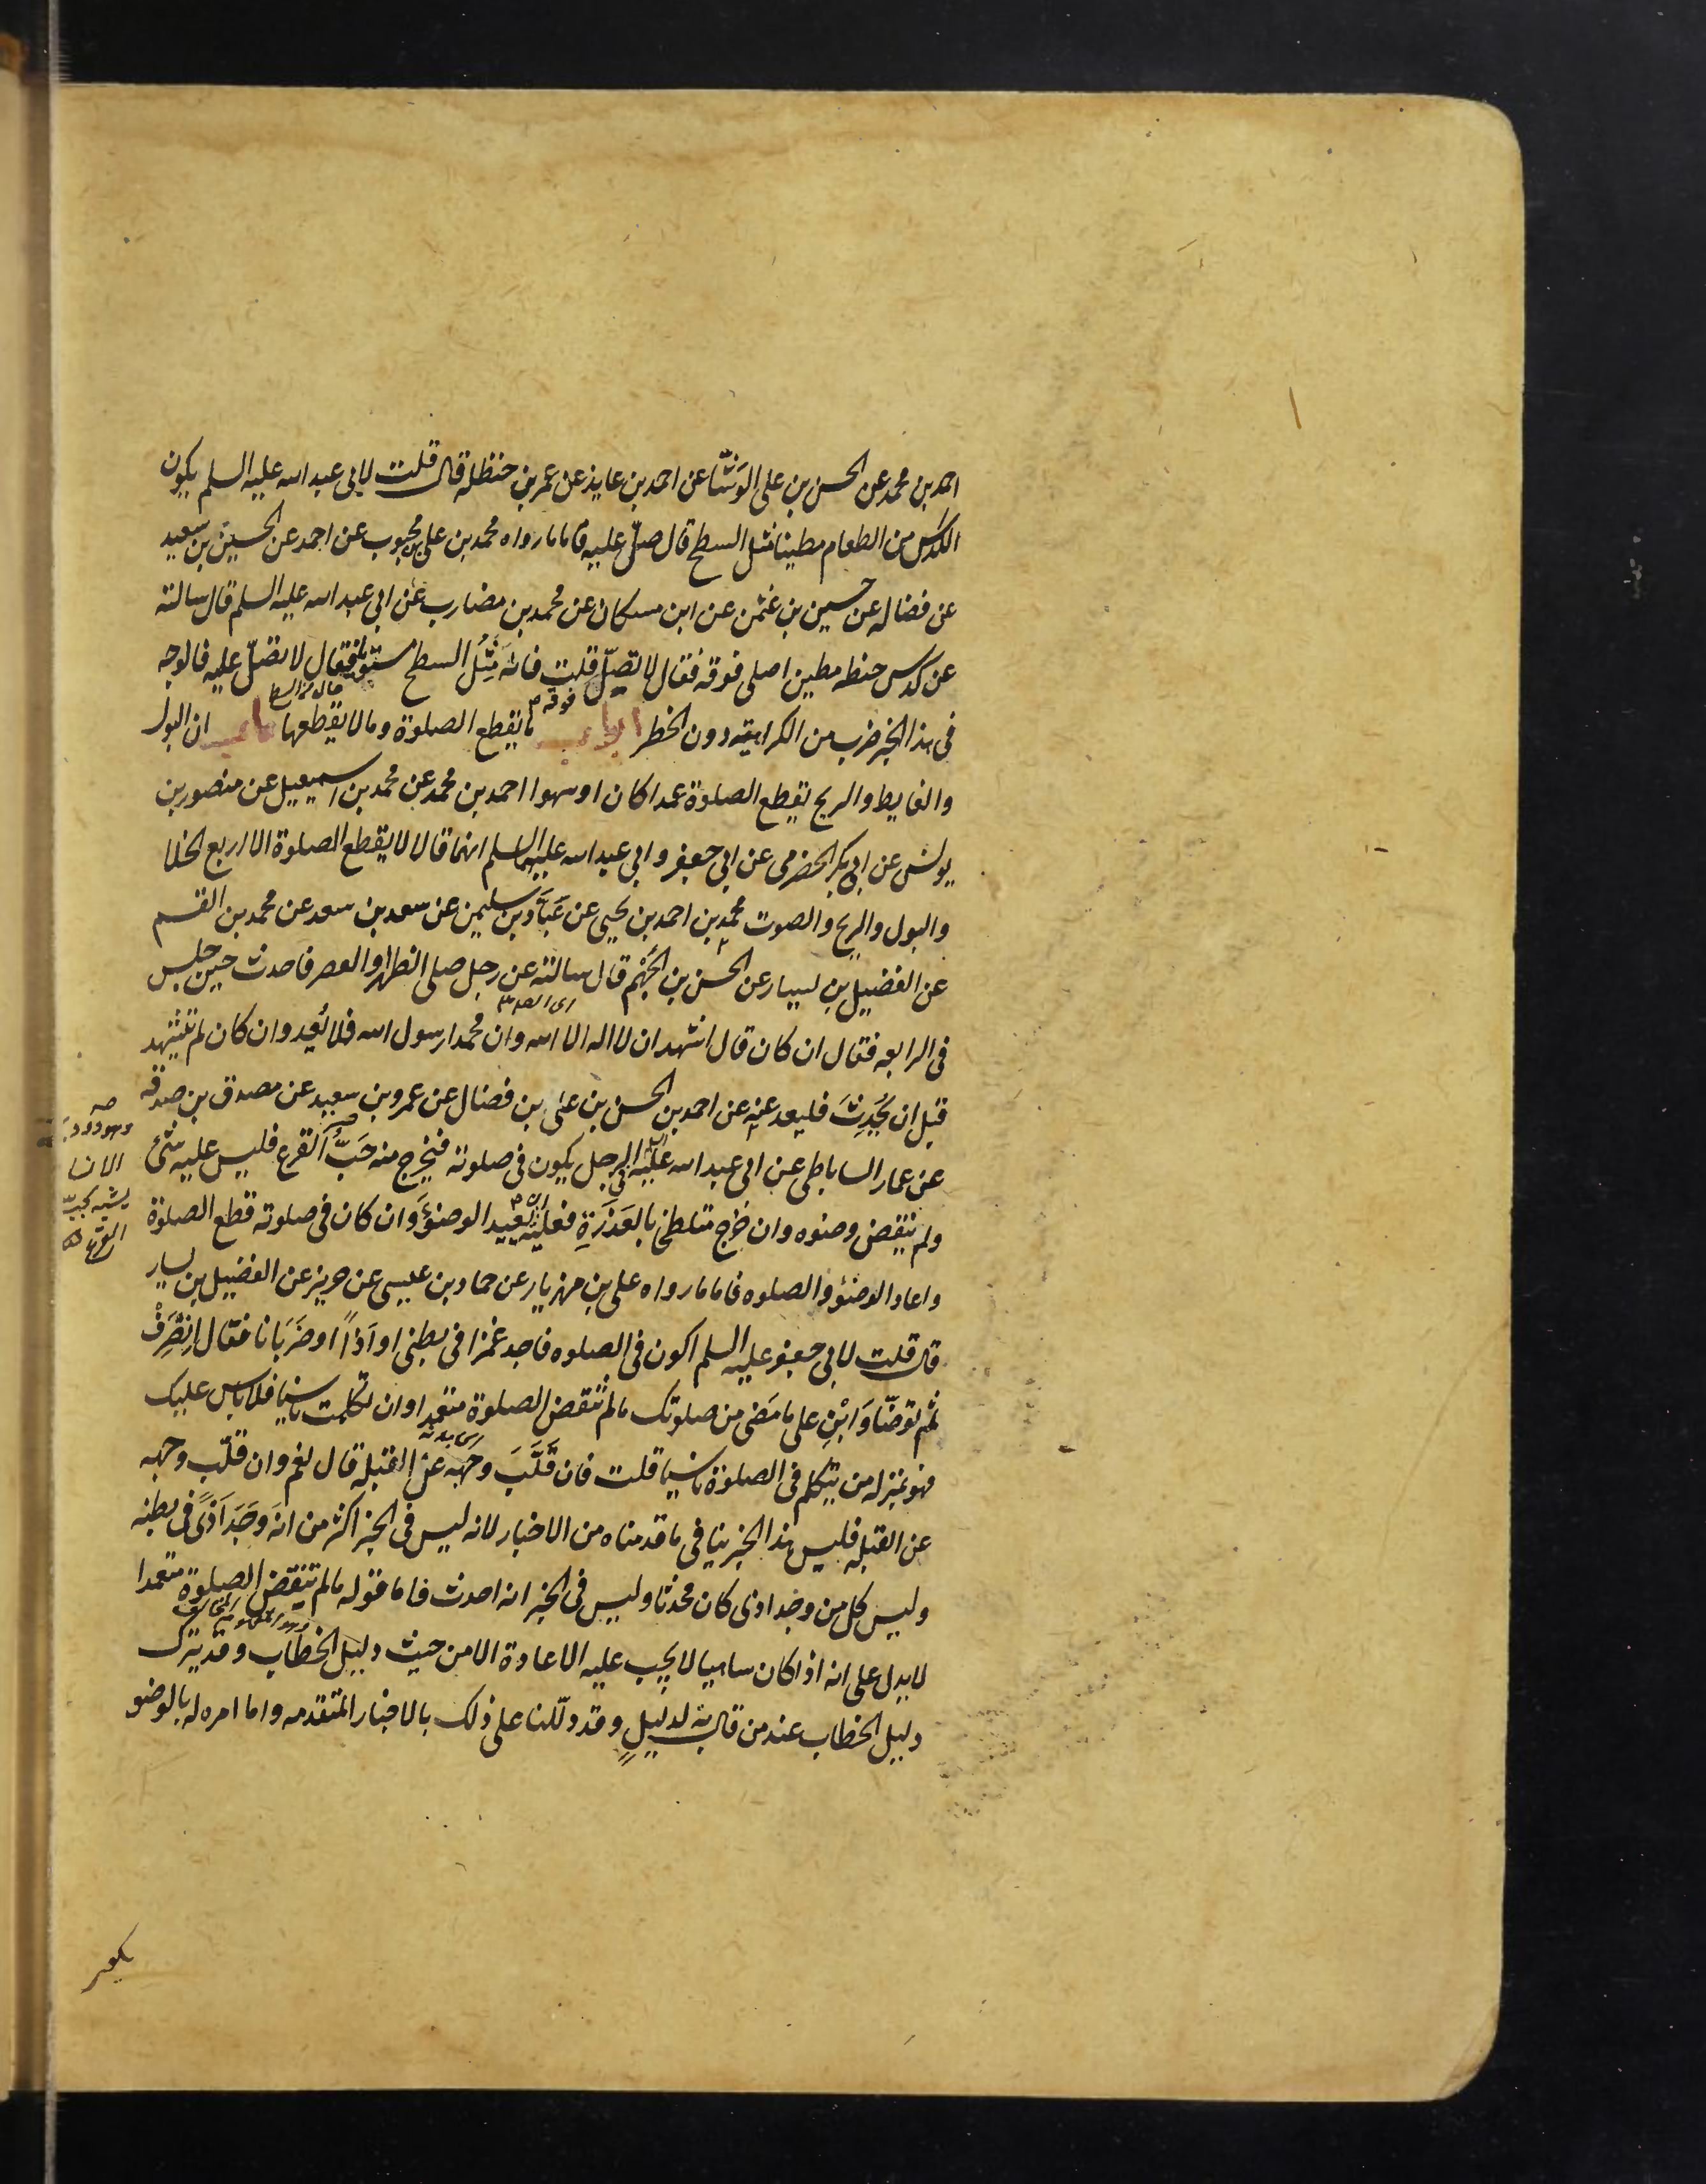 احمد بن محمد عن الحسن بن على الوَشّا عن احمد بن عايذ عن عمر بن حنظله قال قلت لابى عبد الله عليه السلم يكون
الكدس من الطعام مطينا مثل السطح قال صلّ عليه فاما ما رواه محمد بن على بن محبوب عن احمد عن الحسين بن سعيد
عن فضاله عن حسين بن عثمن عن ابن مسكان عن محمد بن مضارب عن ابى عبد الله عليه السلم قال سالته
عن كدس حنطه مطين اصلى فوقه فقال لا تصلّ فوقه قلت فانه مثل السطح مستو فقال لا تصلّ عليه فالوجه
فى هذا الخبر ضرب من الكراهيته دون الخطر ابواب ما يقطع الصلوة وما لا يقطعها باب ان البول
والغايط والريح يقطع الصلوة عمدا كان او سهوا احمد بن محمد عن محمد بن اسمعيل عن منصور بن
يونس عن ابى بكر الحضرمى عن ابى جعفر وابى عبد الله عليهما السلم انهما قالا لا يقطع الصلوة الا اربع الخلا
والبول والريح والصوت محمد بن احمد بن يحيى عن عَبّاد بن سليمن عن سعد بن سعد عن محمد بن القسم
عن الفضيل بن يسار عن الحسن بن الجَهْم قال سالته عن رجل صلى الظهر او العصر فاحدث حين جلس
فى الرابعه فقال ان كان قال اشهد ان لا اله الا الله وان محمدا رسول الله فلا يُعِد وان كان لم يتشهد
قبل ان يُحدِثَ فليعد عنه عن احمد بن الحسن بن على بن فضال عن عمرو بن سعيد عن مصدق بن صدقه
عن عمار الساباطى عن ابى عبد الله عليه السلم فى الرجل يكون فى صلوته فيخرج منه حَبُّ القرع فليس عليه شئ
ولم ينقض وضوه وان خرج متلطخ بالعَذَرَةِ فعليه ان يعيد الوضوءَ وان كان فى صلوته قطع الصلوة
واعاد الوضوء والصلوه فاما ما رواه على بن مهزيار عن حماد بن عيسى عن حريز عن الفضيل بن يسار
قال قلت لابى جعفر عليه السلم اكون فى الصلوه فاجد غمزا فى بطنى او اَذًا او ضَرَبَانا فقال اِنْصَرِفْ
ثم توضّا وَابْنِ على ما مَضى من صلوتك ما لم تنقض الصلوة متعمدا وان تكلمت ناسيا فلا باس عليك
فهو بمنزله من يتكلم فى الصلوة ناسيا قلت فان قَلَّبَ وجهه عن القبله قال نعم وان قلب وجهه
عن القبله فليس هذا الخبر ينافى ما قدمناه من الاخبار لانه ليس فى الخبر اكثر من انه وَجَدَ اَذًى فى بطنه
وليس كل من وجد اذى كان محدثا وليس فى الخبر انه احدث فاما قوله ما لم تنقض الصلوة متعمدا
لا يدل على انه اذا كان ساهيا لا يجب عليه الاعادة الا من حيث دليل الخطاب وقد يترك
دليل الخطاب عند من قال به لدليلٍ وقد دلّلنا على ذلك بالاخبار المتقدمه واما امره له بالوضو